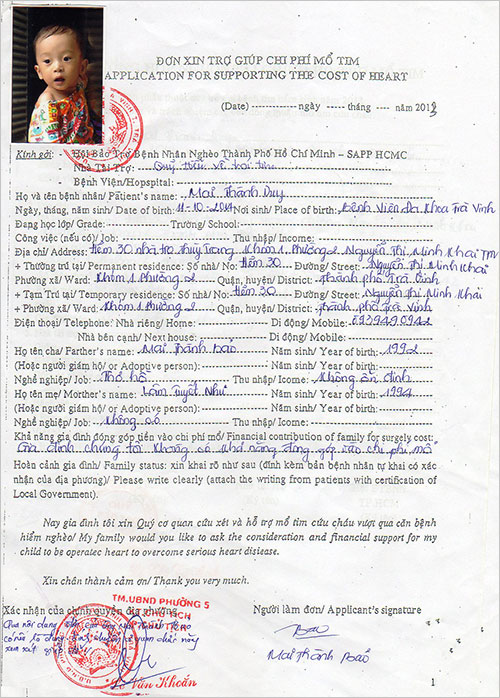 ĐƠN XIN TRỢ GIÚP CHI PHÍ MỔ TIM
APPLICATION FOR SUPPORTING THE COST OF HEART
(Date) ------------ ngày ----- tháng ---- năm 2013
Kính gởi: - Hội Bảo Trợ Bệnh Nhân Nghèo Thành Phố Hồ Chí Minh – SAPP HCMC
- Nhà Tài Trợ: Quỹ trái tim
- Bệnh Viện/Hopspital:
Họ và tên bệnh nhân/ Patient's name: Mai Thành Duy
Ngày, tháng, năm sinh/ Date of birth: 11-10-2011 Nơi sinh/ Place of birth: Bệnh Viện Đa Khoa Trà Vinh
Đang học lớp/ Grade: Trường/ School:
Công việc (nếu có)/ Job: Thu nhập/ Income:
Địa chỉ/ Address: Hẻm 30 nhà trọ Thùy Trang Khóm 1, Phường 2, Nguyễn Thị Minh Khai TPTV
+ Thường trú tại/ Permanent residence: Số nhà/ No: Hẻm 30 Đường/ Street: Nguyễn Thị Minh Khai
Phường xã/ Ward: Khóm 1 Phường 2 Quận, huyện/ District: Thành phố Trà Vinh
+ Tạm Trú tại/ Temporary residence: Số nhà/ No: Hẻm 30 Đường/ Street: Nguyễn Thị Minh Khai
+ Phường xã/ Ward: Khóm 1 Phường 2 Quận, huyện/ District: Thành phố Trà Vinh
Điện thoại/ Telephone: Nhà riêng/ Home: Di động/ Mobile: 0939490942
Nhà bên cạnh/ Next house: Di động/ Mobile:
Họ tên cha/ Farther's name: Mai Thành Bảo Năm sinh/ Year of birth: 1992
(Hoặc người giám hộ/ or Adoptive person): Năm sinh/ Year of birth:
Nghề nghiệp/ Job: Thợ hồ Thu nhập/ Icome: Không ổn định
Họ tên mẹ/ Morther's name: Lâm Tuyết Như Năm sinh/ Year of birth: 1994
(Hoặc người giám hộ/ or Adoptive person): Năm sinh/ Year of birth:
Nghề nghiệp/ Job: Không có Thu nhập/ Icome:
Khả năng gia đình đóng góp tiền vào chi phí mổ/ Financial contribution of family for surgely cost:
Gia đình chúng tôi không có khả năng đóng góp vào chi phí mổ
Hoàn cảnh gia đình/ Family status: xin khai rõ như sau (đính kèm bản bệnh nhân tự khai có xác nhận
của địa phương)/ Please write clearly (attach the writing from patients with certification of
Local Government).
Nay gia đình tôi xin Quý cơ quan cứu xét và hỗ trợ mổ tim cứu cháu vượt qua căn bệnh
hiểm nghèo/ My family would you like to ask the consideration and financial support for my
child to be operatec heart to overcome serious heart disease.
Xin chân thành cảm ơn/ Thank you very much.
Xác nhận của chính quyền địa phương
Người làm đơn/ Applicant's signature
TM.UBND PHƯỜNG 5
CHỦ TỊCH
Bảo
Mai Thành Bảo
Lê Văn Khoắn
1